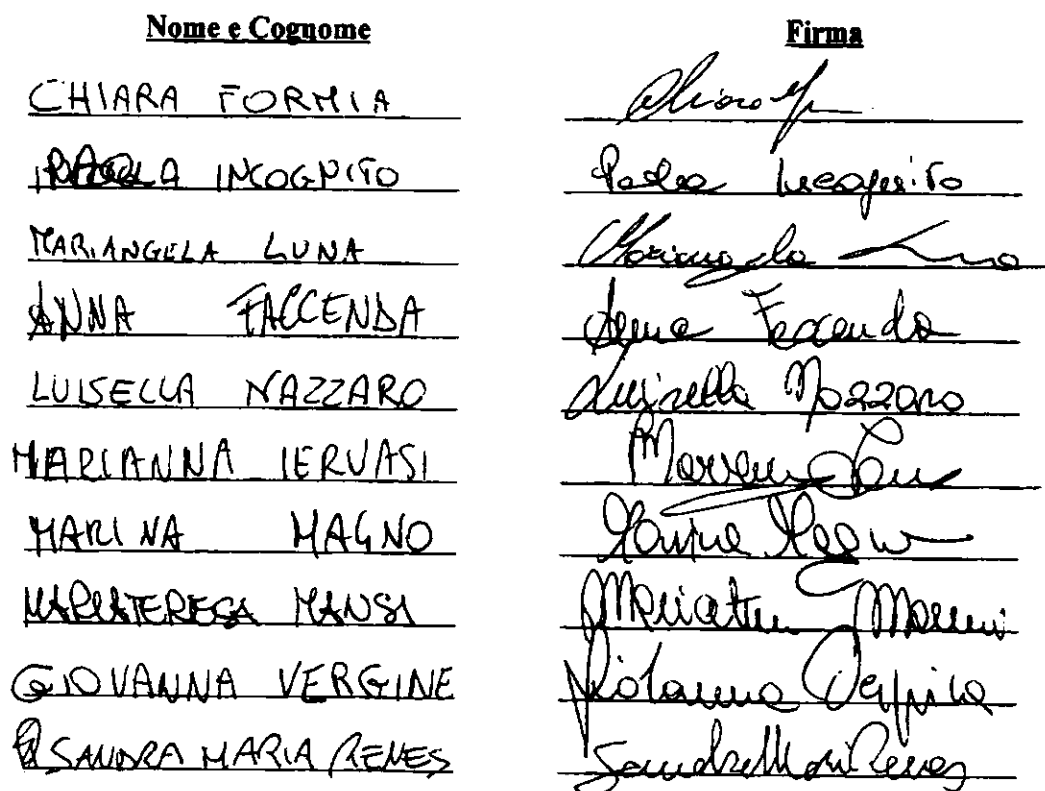 Nome e Cognome Firma
CHIARA FORMIA Chiara
PAOLA INCOGNITO Paola Incognito
MARIANGELA LUNA Mariangela Luna
ANNA FACCENDA Anna Faccenda
LUISELLA NAZZARO Luisella Nazzaro
MARIANNA IERVASI
MARINA MAGNO Marina Magno
MARIATERESA MANSI Mansi
GIOVANNA VERGINE Giovanna Vergine
SANDRA MARIA RENES Sandra Maria Renes